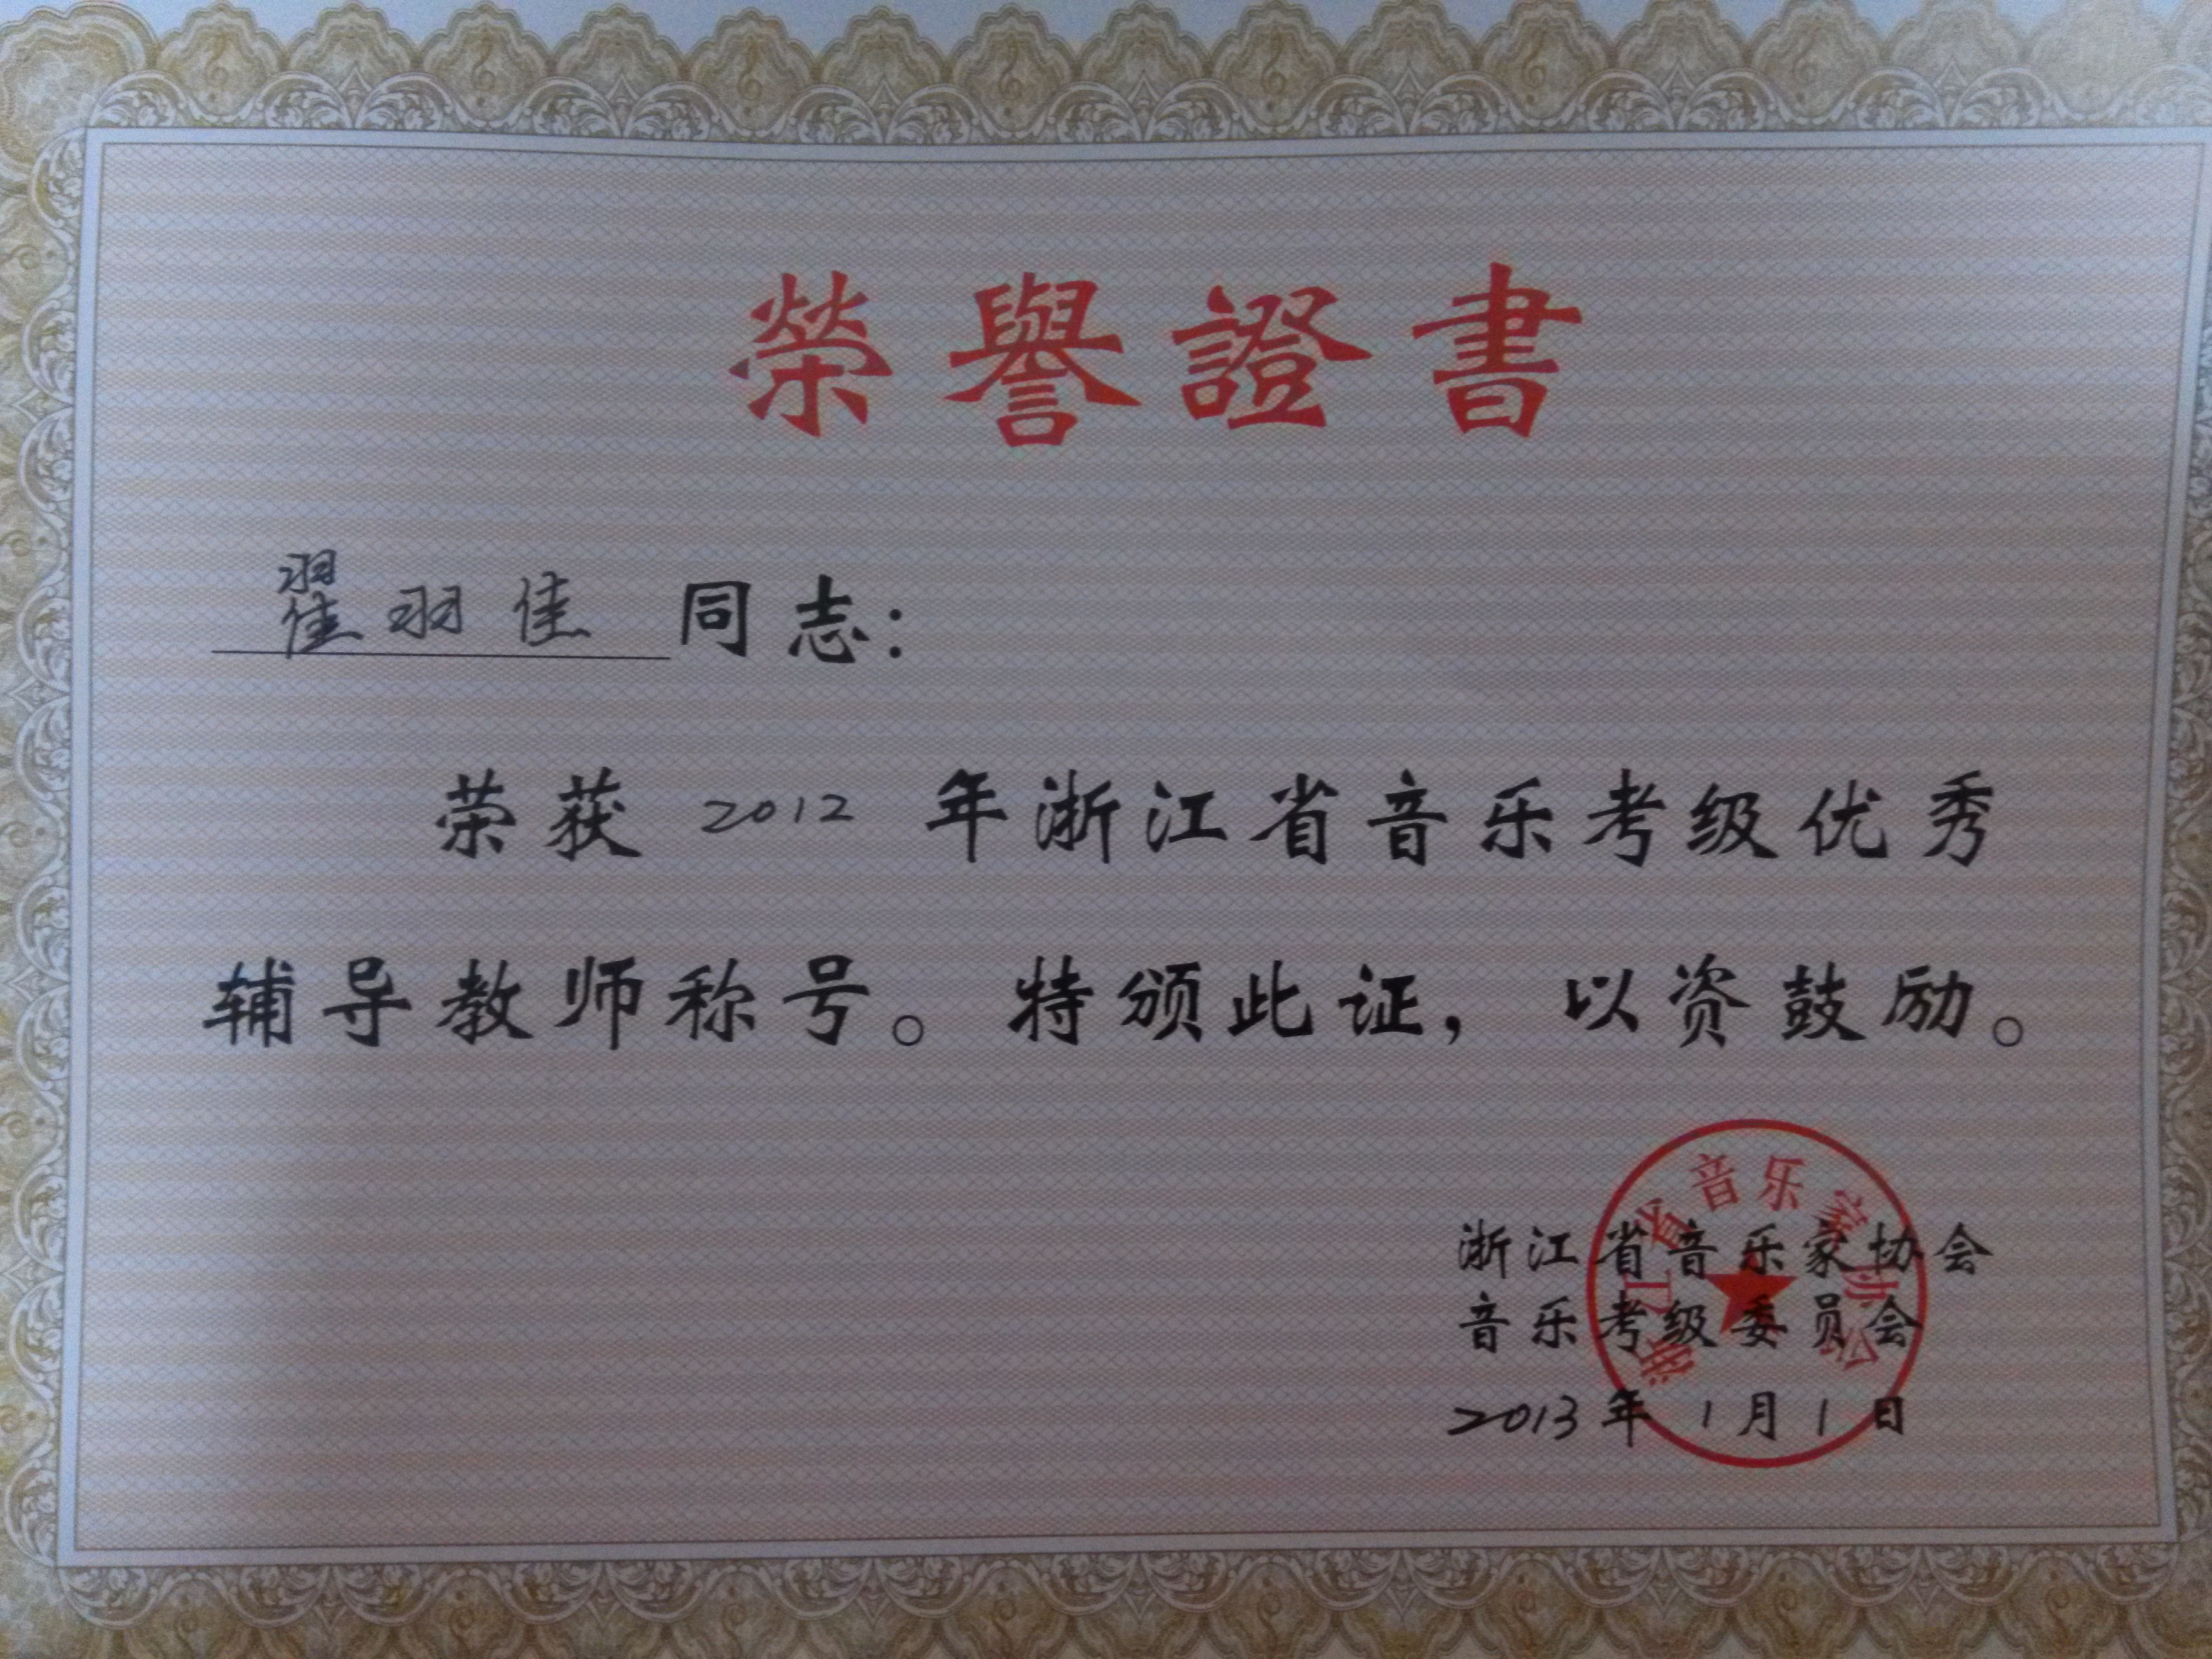 榮譽證書
翟羽佳同志：
荣获 2012 年浙江省音乐考级优秀
辅导教师称号。特颁此证，以资鼓励。
浙江省音乐家协会
音乐考级委员会
2013年 1月 1日
浙江省音乐家协会